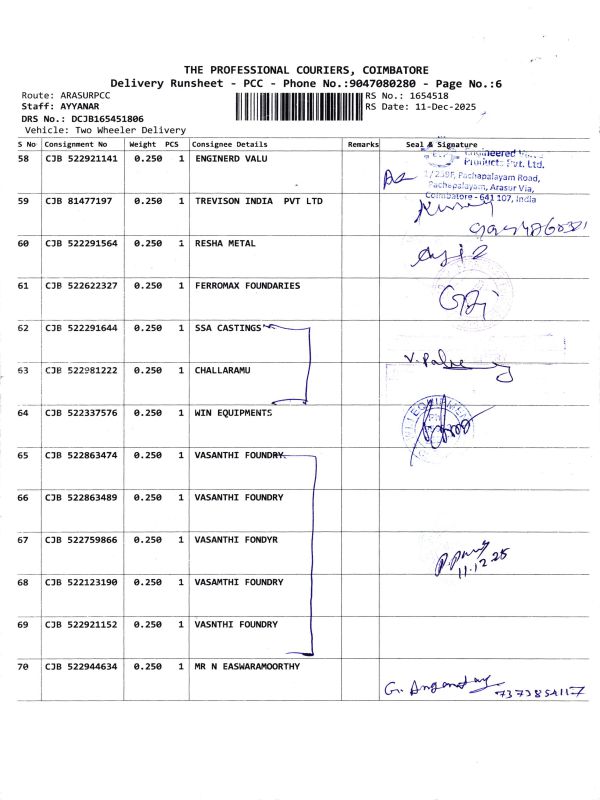 THE PROFESSIONAL COURIERS, COIMBATORE
Delivery Runsheet - PCC - Phone No.:9047080280 - Page No.:6
Route: ARASURPCC RS No.: 1654518
Staff: AYYANAR RS Date: 11-Dec-2025
DRS No.: DCJB165451806
Vehicle: Two Wheeler Delivery
S No Consignment No Weight PCS Consignee Details Remarks Seal & Signature
58 CJB 522921141 0.250 1 ENGINERD VALU
Products Pvt. Ltd.
1/239F, Pachapalayam Road,
Pachapalayam, Arasur Via,
Coimbatore - 641 107, India
59 CJB 81477197 0.250 1 TREVISON INDIA PVT LTD
60 CJB 522291564 0.250 1 RESHA METAL
61 CJB 522622327 0.250 1 FERROMAX FOUNDARIES
62 CJB 522291644 0.250 1 SSA CASTINGS
63 CJB 522981222 0.250 1 CHALLARAMU
64 CJB 522337576 0.250 1 WIN EQUIPMENTS
65 CJB 522863474 0.250 1 VASANTHI FOUNDRY
66 CJB 522863489 0.250 1 VASANTHI FOUNDRY
67 CJB 522759866 0.250 1 VASANTHI FONDYR
11.12.25
68 CJB 522123190 0.250 1 VASAMTHI FOUNDRY
69 CJB 522921152 0.250 1 VASNTHI FOUNDRY
70 CJB 522944634 0.250 1 MR N EASWARAMOORTHY